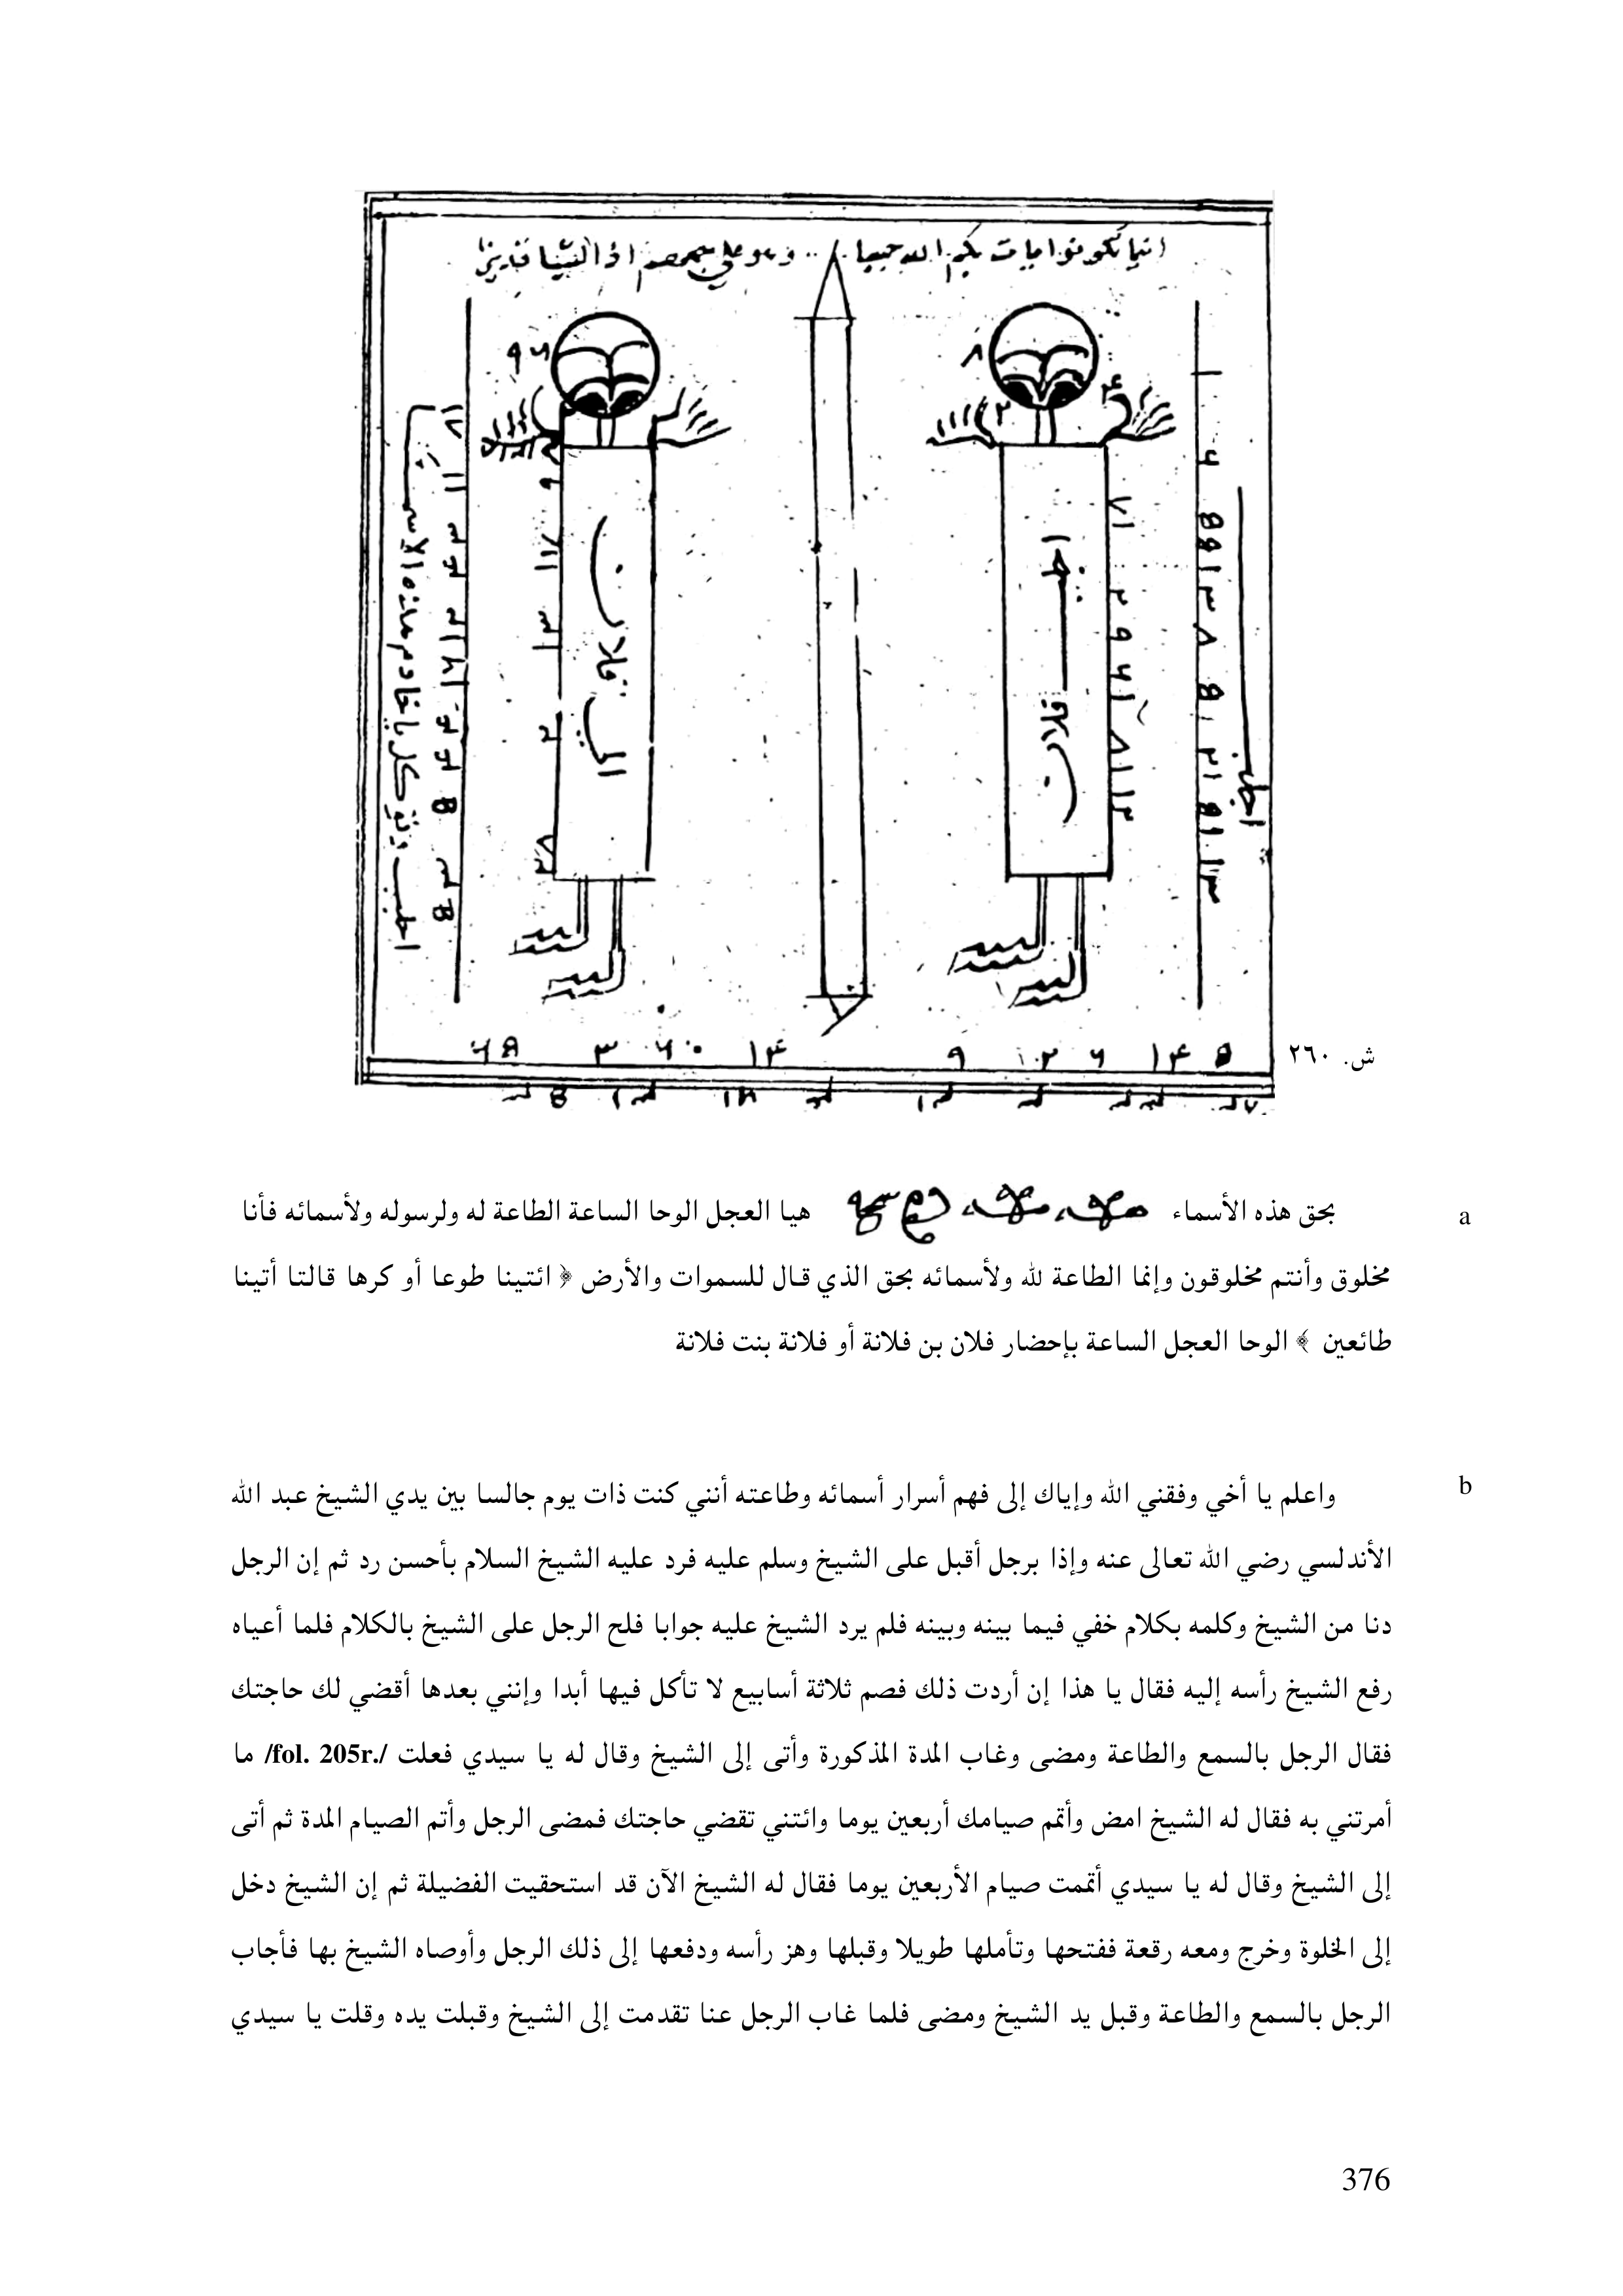 اينما تكونوا يات بكم الله جميعا .. وهو على جمعهم اذا يشا قدير
فلان
الي فلان
ش. ٢٦٠
بحق هذه الأسماء هيا العجل الوحا الساعة الطاعة له ولرسوله ولأسمائه فأنا
a
مخلوق وأنتم مخلوقون وإنما الطاعة لله ولأسمائه بحق الذي قال للسموات والأرض ﴿ ائتينا طوعا أو كرها قالتا أتينا
طائعين ﴾ الوحا العجل الساعة بإحضار فلان بن فلانة أو فلانة بنت فلانة
واعلم يا أخي وفقني الله وإياك إلى فهم أسرار أسمائه وطاعته أنني كنت ذات يوم جالسا بين يدي الشيخ عبد الله
b
الأندلسي رضي الله تعالى عنه وإذا برجل أقبل على الشيخ وسلم عليه فرد عليه الشيخ السلام بأحسن رد ثم إن الرجل
دنا من الشيخ وكلمه بكلام خفي فيما بينه وبينه فلم يرد الشيخ عليه جوابا فلح الرجل على الشيخ بالكلام فلما أعياه
رفع الشيخ رأسه إليه فقال يا هذا إن أردت ذلك فصم ثلاثة أسابيع لا تأكل فيها أبدا وإنني بعدها أقضي لك حاجتك
فقال الرجل بالسمع والطاعة ومضى وغاب المدة المذكورة وأتى إلى الشيخ وقال له يا سيدي فعلت /fol. 205r./ ما
أمرتني به فقال له الشيخ امض وأتمم صيامك أربعين يوما وائتني تقضي حاجتك فمضى الرجل وأتم الصيام المدة ثم أتى
إلى الشيخ وقال له يا سيدي أتممت صيام الأربعين يوما فقال له الشيخ الآن قد استحقيت الفضيلة ثم إن الشيخ دخل
إلى الخلوة وخرج ومعه رقعة ففتحها وتأملها طويلا وقبلها وهز رأسه ودفعها إلى ذلك الرجل وأوصاه الشيخ بها فأجاب
الرجل بالسمع والطاعة وقبل يد الشيخ ومضى فلما غاب الرجل عنا تقدمت إلى الشيخ وقبلت يده وقلت يا سيدي
376